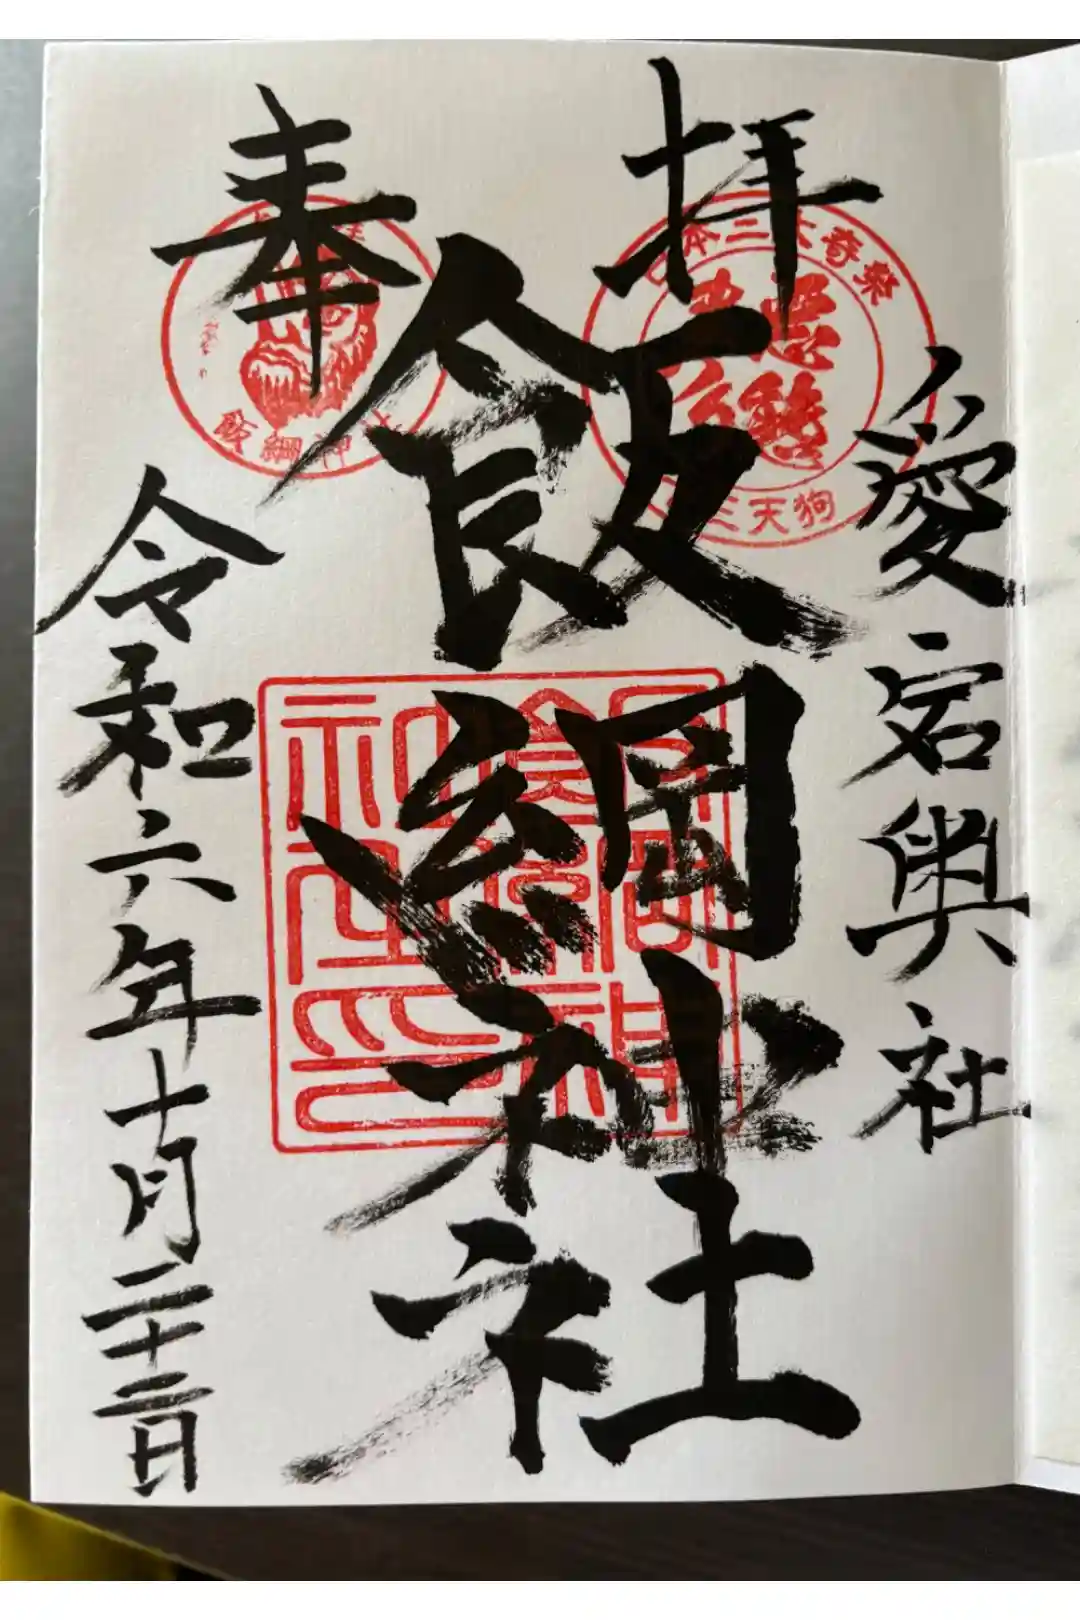 奉拝
愛宕奥社
飯綱神社
令和六年十月二十二日
本三大奇祭
三天狗
飯綱神